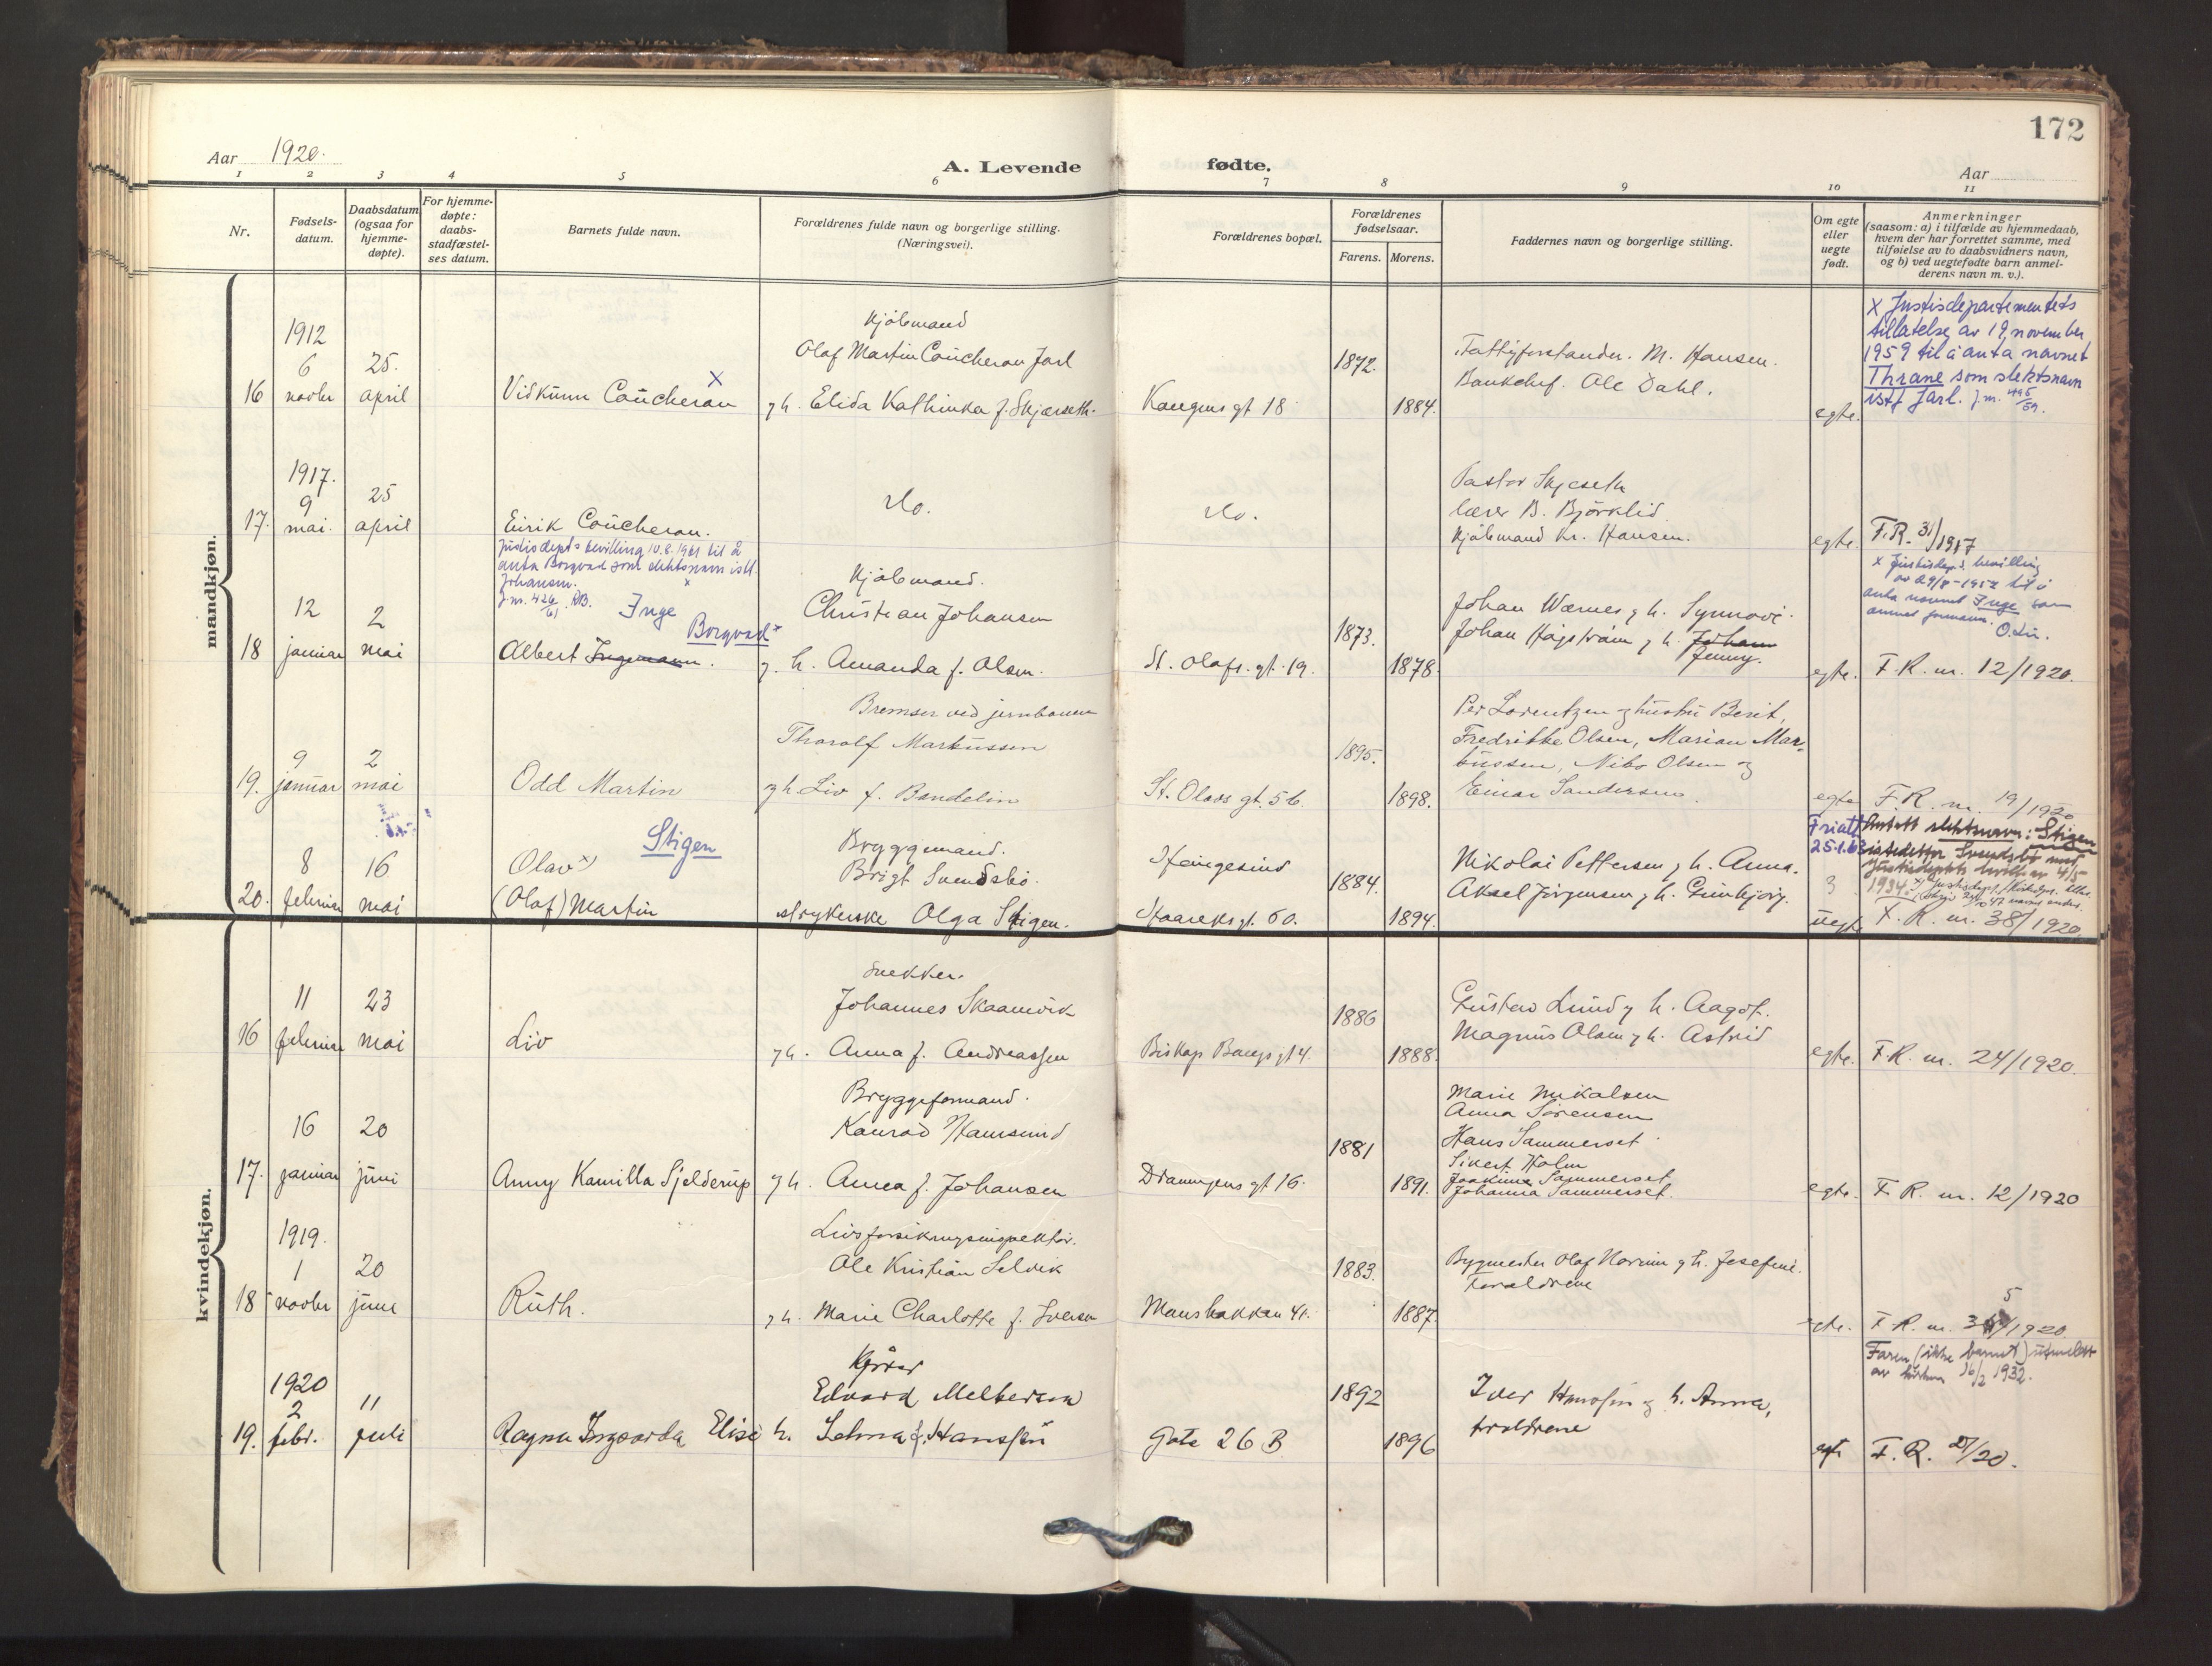 172
Aar 1920.
A. Levende fødte.
Aar
1 2 3 4 5 6 7 8 9 10 11
Nr.
Fødsels-
datum.
Daabsdatum
(ogsaa for
hjemme-
døpte).
For hjemme-
døpte:
daabs-
stadfæstel-
ses datum.
Barnets fulde navn.
Forældrenes fulde navn og borgerlige stilling.
(Næringsvei).
Forældrenes bopæl.
Forældrenes
fødselsaar.
Farens. Morens.
Faddernes navn og borgerlige stilling.
Om egte
eller
uegte
født.
Anmerkninger
(saasom: a) i tilfælde av hjemmedaab,
hvem der har forrettet samme, med
tilføielse av to daabsvidners navn,
og b) ved uegtefødte barn anmel-
derens navn m. v.).
mandkjøn.
16
1912
6
novbr
25.
april
Vidkunn Coücheron X
Kjøbmand
Olaf Martin Coücheron Jarl
g h. Elida Kathinka f. Skjærseth.
Kongens gt 18
1872.
1884.
Fattigforstander. M. Hansen.
Bankchef. Ole Dahl.
egte.
X Justisdepartementets
tillatelse av 19, november
1959 til å anta navnet
Thrane som slektsnavn
istf Jarl.
17.
1917.
9
mai.
25
april
Eirik Coücheron.
do.
do.
Pastor
lærer B. Björklid
Kjøbmand Kr. Hansen.
egte.
F.R. 31/1917
18
12
januar
2
mai
Justisdept=bevilling 10.8.1961 til å
anta Borgvad som slektsnavn istf.
Johansen. X
J.nr. 426/61. RB.
Inge
Borgvad X
Albert Ingemann.
Kjøbmand.
Christian Johansen
g. h. Amanda f. Olsen.
St. Olafs. gt. 19.
1873.
1878.
Johan Wærnes g h. Synnøve.
Johan Hagstrøm g h. Johan
Jenny.
egte.
X Justisdep.s bevilling
til å
anta navnet Inge som
annet fornavn.
F.R. nr. 12/1920.
19.
9
januar
2
mai
Odd Martin
Bremser ved jernbanen
Thoralf Markussen
g h Liv f. Bendelin
St. Olavs gt. 5 b.
1895.
1898.
Per Lorentzen og hustru Berit,
Fredrikke Olsen, Marian Mar-
kussen, Olsen og
Einar Sandersen.
egte
F.R. nr. 19/1920
20.
8
februar
16
mai
Stigen
Olav x)
(Olaf) Martin
Bryggemand.
Brigt Svendsbø.
strykerske Olga Stigen.
Haugesund
Haareks gt. 60.
1884.
1894.
Nikolai Pettersen g h. Anna.
Aksel Jörgensen g h. Gunbjörg.
25.1.63
3
uegte
Antatt slektsnavn: Stigen
istedetfor Svendsbø med
Justisdepts bevilling av 4/5
1934.
F.R. nr. 38/1920.
kvindekjøn.
16
11
februar
23
mai
Liv
Snekker.
Johannes Skaanvik
g h. Anna f. Andreassen
Biskop Bangs gt 4.
1886
1888.
Gustav Lund g h. Aagot.
Magnus Olsen g h. Astrid
egte.
F.R. nr. 24/1920.
17.
16
januar
20
juni
Anny Kamilla Sjelderup
Bryggeformand.
Konrad Hamsund
g h. Anna f. Johansen
Dronningens gt 16.
1881
1891.
Marie Mikalsen
Anna Sørensen
Hans Sammerset
Sivert Holm
Joakime Sammerset
Johanna Sammerset.
egte.
F.R. nr. 12/1920
18
1919.
1
novbr
20
june
Ruth.
Livsforsikringsinspektør.
Ole Kristian Selvik
g h. Marie Charlotte f. Iversen
Mausbakken 4.
1883.
1887.
Bygmester Olaf Norum g h. Josefine.
Forældrene
egte.
5
Faren (ikke barnet) utmeldt
av kirken 16/2 1932.
19.
1920
2
febr.
11
juli
Ragna Ingvarda Elise
Kjører
Edvard Melbersen
h. Selma f. Hanssen
Gate 26 B
1892
1896
Iver Hansen og h. Anna,
foreldrene
egte
F.R. 27/20.